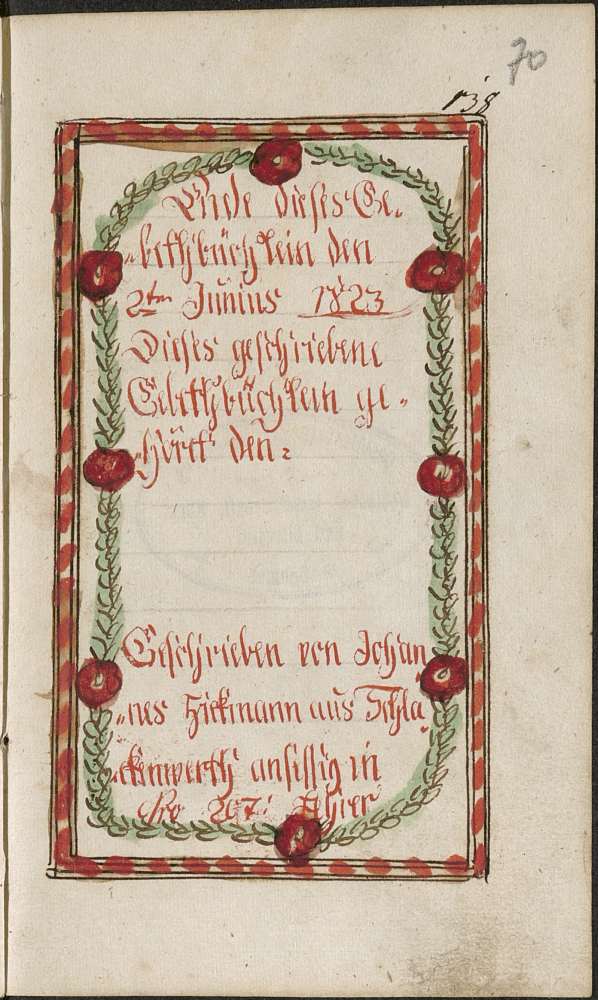 70
138
Ende dieses Ge„
„bethbüchlein den
2ten Junius 1823
Dieses geschriebene
Gebethbüchlein ge„
„hört den:
Geschrieben von Johan„
„nes Hickmann aus Schla„
„ckenwerth ansissig in
Nro 267: